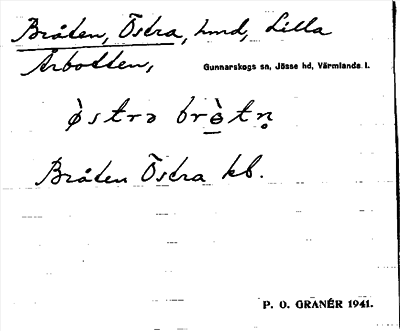 Bråten, Östra, hmd, Lilla
Årbotten,
Gunnarskogs sn, Jösse hd, Värmlands l.
ö̀strə brὲ̱tn̥
Bråten Östra kb.
P. O. GRANÉR 1941.